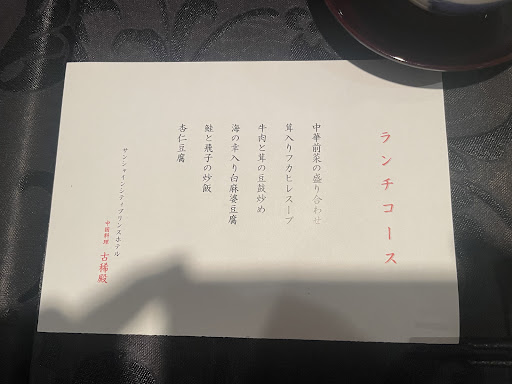 ランチコース
中華前菜の盛り合わせ
茸入りフカヒレスープ
牛肉と茸の豆鼓炒め
海の幸入り白麻婆豆腐
鮭と飛子の炒飯
杏仁豆腐
サンシャインシティプリンスホテル
中国料理 古稀殿